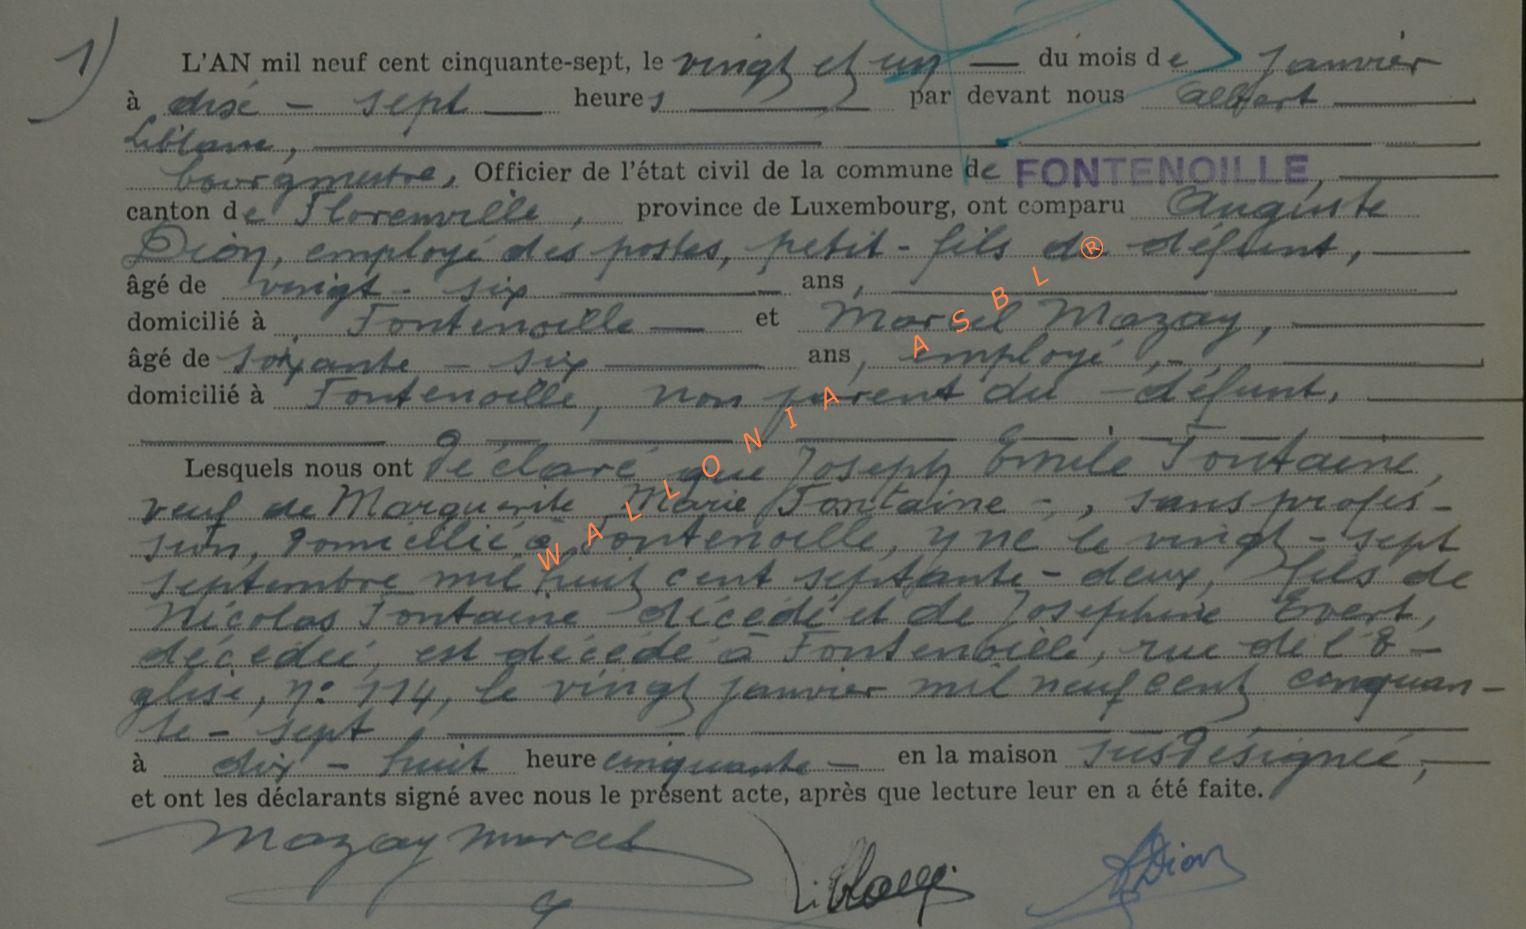 1)
L'AN mil neuf cent cinquante-sept, le vingt et un — du mois de Janvier
à dix - sept — heures par devant nous Albert
Leblanc,
bourgmestre, Officier de l'état civil de la commune de FONTENOILLE,
canton de Florenville, province de Luxembourg, ont comparu Auguste
Dion, employé des postes, petit-fils du défunt,
âgé de vingt-six ans,
domicilié à Fontenoille — et Marcel Mozay,
âgé de soixante-six ans, employé
domicilié à Fontenoille, non parent du défunt.
Lesquels nous ont déclaré que Joseph Emile Fontaine,
veuf de Marguerite Marie Fontaine -, sans profes-
sion, domicilié à Fontenoille, y né le vingt-sept
septembre mil huit cent septante-deux, fils de
Nicolas Fontaine décédé et de Joséphine Evert,
décédée, est décédé à Fontenoille, rue de l'E-
glise, n° 114, le vingt janvier mil neuf cent cinquan-
te-sept
à dix-huit heure cinquante — en la maison susdésignée,
et ont les déclarants signé avec nous le présent acte, après que lecture leur en a été faite.
Mozay Marcel
ADion
WALLONIA ASBL ®